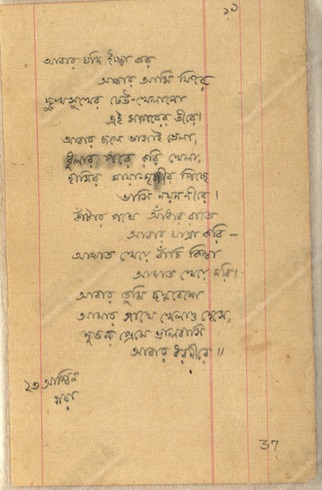 ১৯
আবার যদি ইচ্ছা কর
আবার আসি ফিরে
দুঃখসুখের ঢেউ-খেলানো
এই সাগরের তীরে।
আবার জলে ভাসাই ভেলা,
ধূলার পরে করি খেলা,
হাসির মায়ামৃগীর পিছে
ভাসি নয়ননীরে।
কাঁটার পথে আঁধার রাতে
আবার যাত্রা করি—
আঘাত খেয়ে বাঁচি কিম্বা
আঘাত খেয়ে মরি।
আবার তুমি ছদ্মবেশে
আমার সাথে খেলাও হেসে,
নূতন প্রেমে ভালবাসি
আবার ধরণীরে॥
২৩ আশ্বিন
37